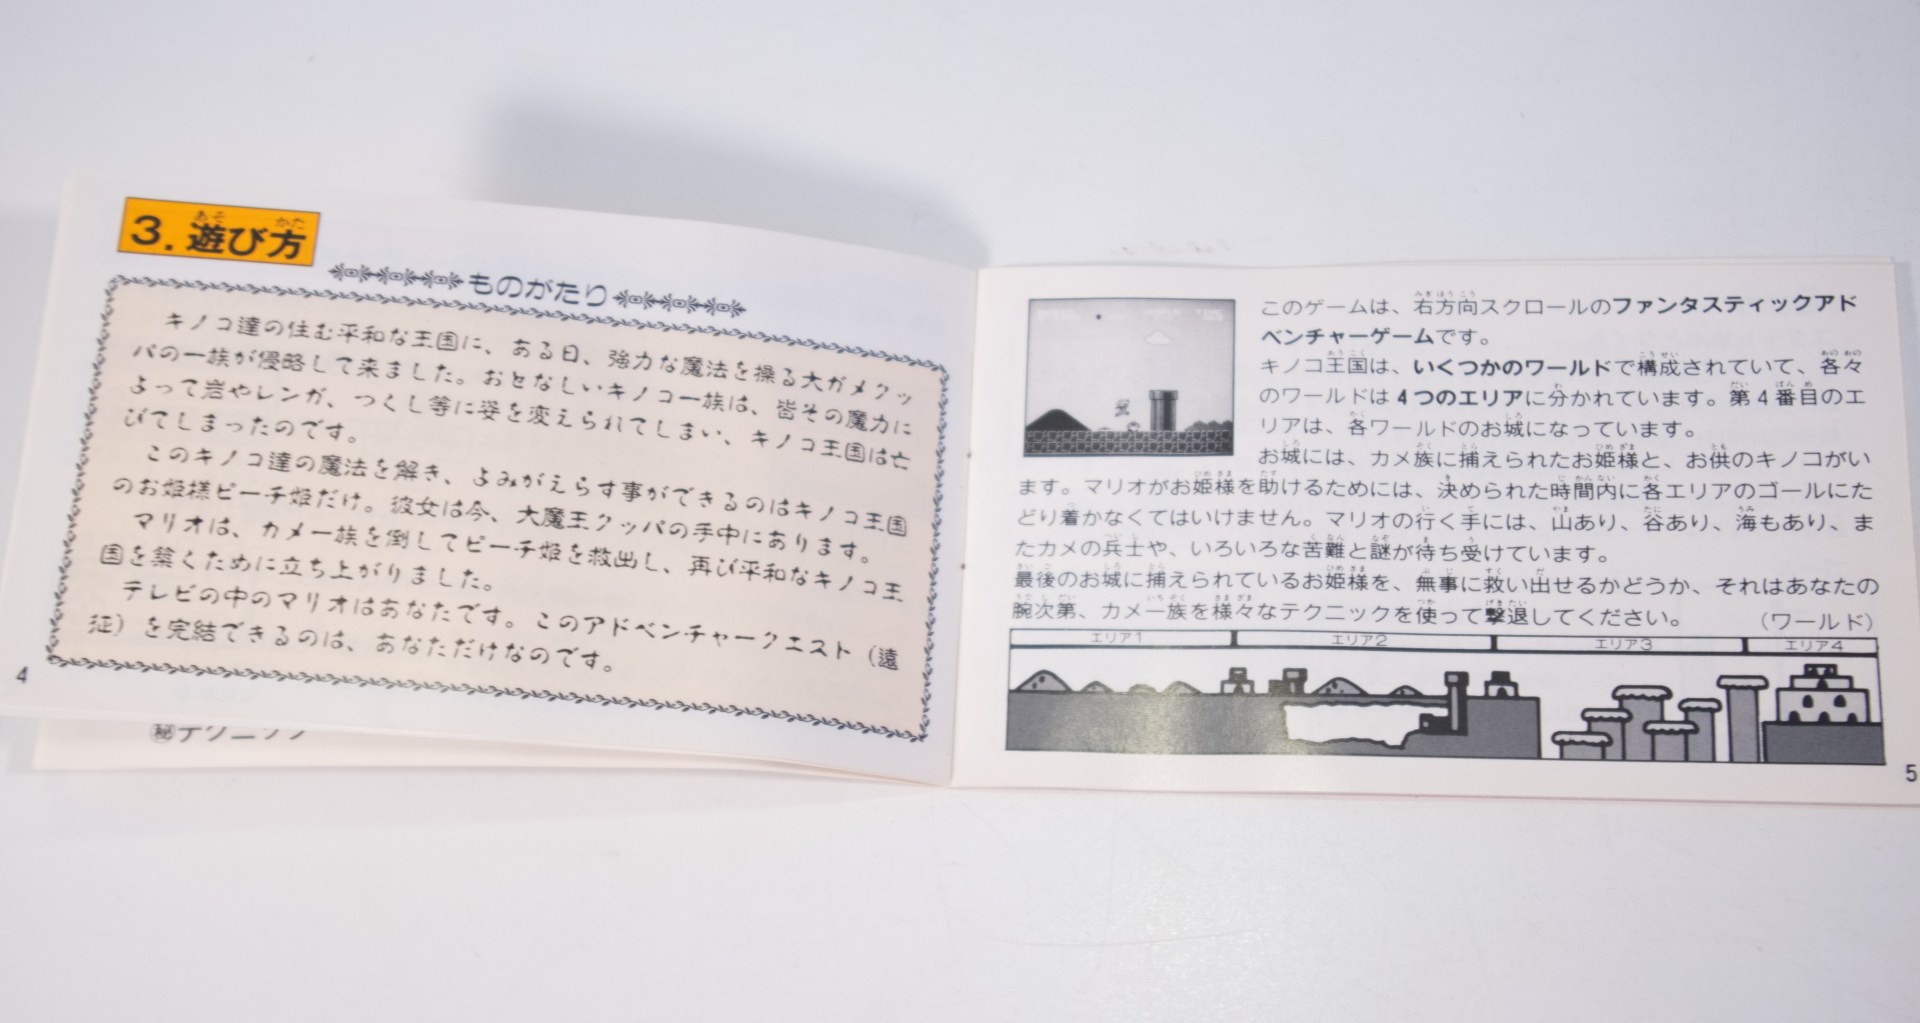 3. 遊び方
ものがたり
キノコ達の住む平和な王国に、ある日、強力な魔法を操る大ガメクッ
パの一族が侵略して来ました。おとなしいキノコ一族は、皆その魔力に
よって岩やレンガ、つくし等に姿を変えられてしまい、キノコ王国は亡
びてしまったのです。
このキノコ達の魔法を解き、よみがえらす事ができるのはキノコ王国
のお姫様ピーチ姫だけ。彼女は今、大魔王クッパの手中にあります。
マリオは、カメ一族を倒してピーチ姫を救出し、再び平和なキノコ王
国を築くために立ち上がりました。
テレビの中のマリオはあなたです。このアドベンチャークエスト（遠
征）を完結できるのは、あなただけなのです。
4
㊙テクニック
このゲームは、右方向スクロールのファンタスティックアド
ベンチャーゲームです。
キノコ王国は、いくつかのワールドで構成されていて、各々
のワールドは4つのエリアに分かれています。第4番目のエ
リアは、各ワールドのお城になっています。
お城には、カメ族に捕えられたお姫様と、お供のキノコがい
ます。マリオがお姫様を助けるためには、決められた時間内に各エリアのゴールにた
どり着かなくてはいけません。マリオの行く手には、山あり、谷あり、海もあり、ま
たカメの兵士や、いろいろな苦難と謎が待ち受けています。
最後のお城に捕えられているお姫様を、無事に救い出せるかどうか、それはあなたの
腕次第、カメ一族を様々なテクニックを使って撃退してください。
（ワールド）
エリア1 エリア2 エリア3 エリア4
5